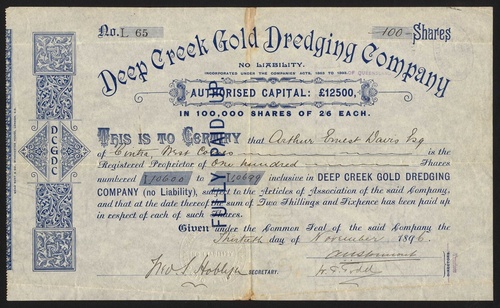 No. L 65 100 Shares
Deep Creek Gold Dredging Company
NO LIABILITY.
INCORPORATED UNDER THE COMPANIES ACTS, OF
AUTHORISED CAPITAL: £12500,
IN 100,000 SHARES OF 2/6 EACH.
FULLY PAID UP
THIS IS TO CERTIFY that Arthur Ernest Davis Esq
of is the
Registered Proprietor of One hundred Shares
numbered to inclusive in DEEP CREEK GOLD DREDGING
COMPANY (no Liability), subject to the Articles of Association of the said Company,
and that at the date thereof the sum of Two Shillings and Sixpence has been paid up
in respect of each of such Shares.
Given under the Common Seal of the said Company the
Thirtieth day of November 1896
SECRETARY.
DCGDC